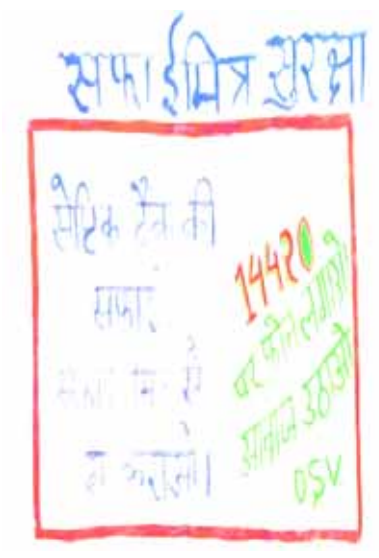 सफाईमित्र सुरक्षा
सेप्टिक टैंक की
सफाई
न कराओ।
14420
पर फोन लगाओ
आवाज उठाओ
DSV